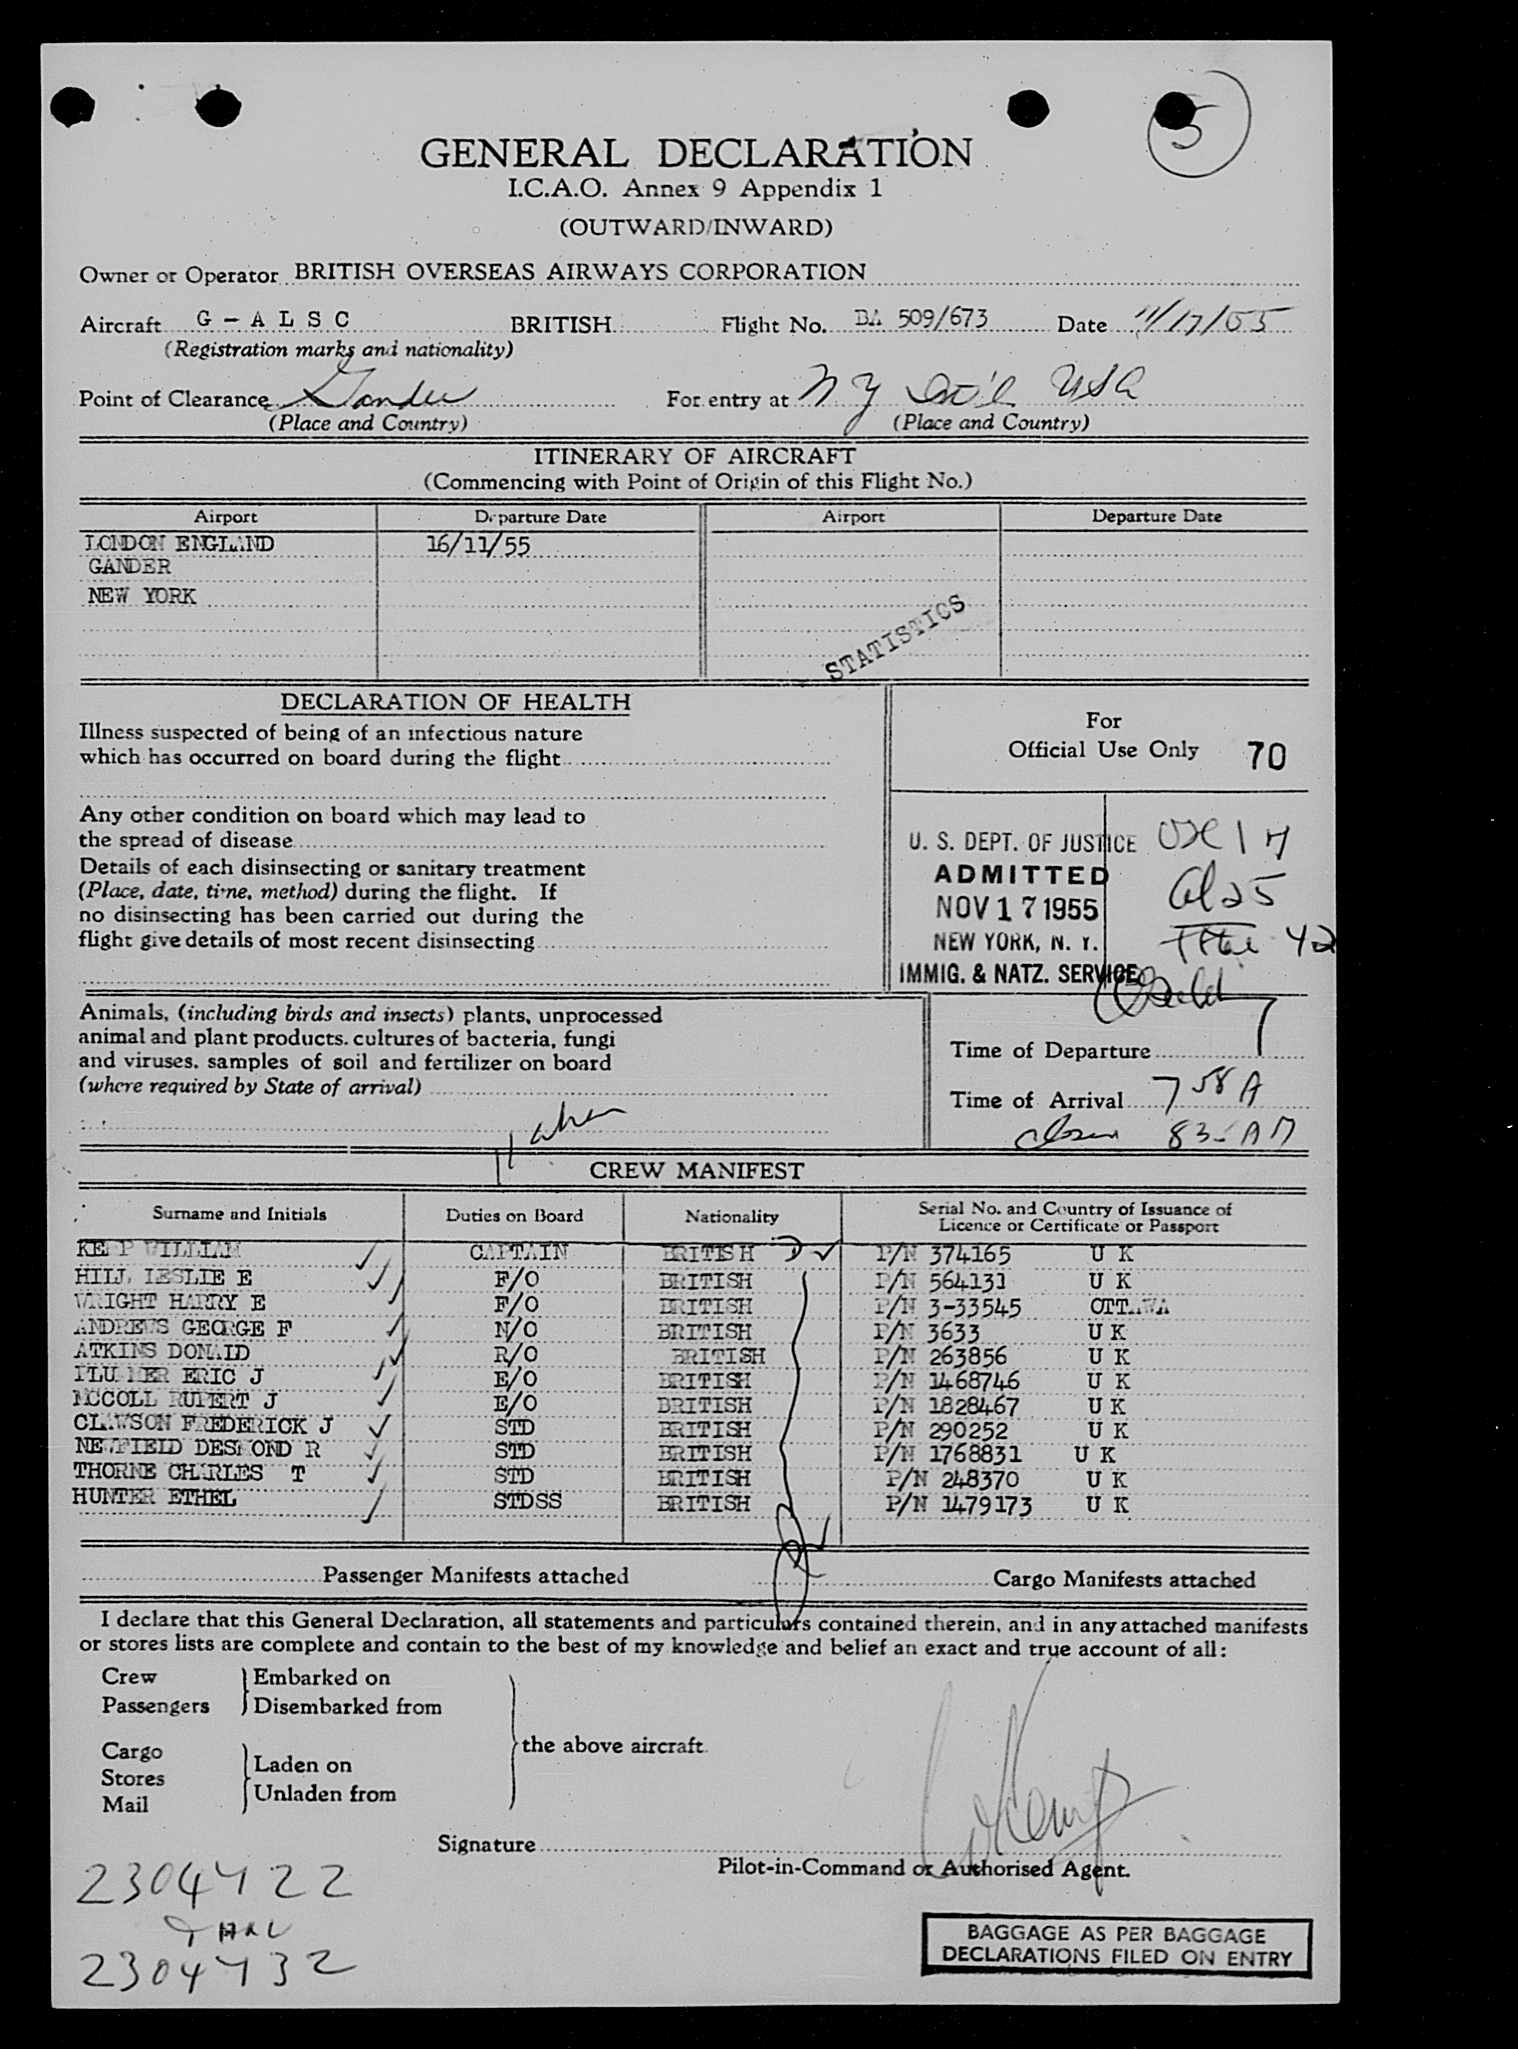 5
GENERAL DECLARATION
I.C.A.O. Annex 9 Appendix 1
(OUTWARD/INWARD)
Owner or Operator BRITISH OVERSEAS AIRWAYS CORPORATION
Aircraft G - A L S C BRITISH Flight No. BA 509/673 Date 11/17/55
(Registration marks and nationality)
Point of Clearance Gander For entry at N Y Int'l USA
(Place and Country) (Place and Country)
ITINERARY OF AIRCRAFT
(Commencing with Point of Origin of this Flight No.)
Airport Departure Date Airport Departure Date
LONDON ENGLAND 16/11/55
GANDER
NEW YORK
STATISTICS
DECLARATION OF HEALTH
Illness suspected of being of an infectious nature
which has occurred on board during the flight
Any other condition on board which may lead to
the spread of disease
Details of each disinsecting or sanitary treatment
(Place, date, time, method) during the flight. If
no disinsecting has been carried out during the
flight give details of most recent disinsecting
For
Official Use Only 70
U. S. DEPT. OF JUSTICE
ADMITTED
NOV 17 1955
NEW YORK, N. Y.
IMMIG. & NATZ. SERVICE
USC 17
Al 25
42
Animals, (including birds and insects) plants, unprocessed
animal and plant products, cultures of bacteria, fungi
and viruses, samples of soil and fertilizer on board
(where required by State of arrival)
Time of Departure
Time of Arrival 7 58 A
CREW MANIFEST
Surname and Initials Duties on Board Nationality Serial No. and Country of Issuance of
Licence or Certificate or Passport
KEMP WILLIAM CAPTAIN BRITISH P/N 374165 U K
HILL LESLIE E F/O BRITISH P/N 564131 U K
WRIGHT HARRY E F/O BRITISH P/N 3-33545 OTTAWA
ANDREWS GEORGE F N/O BRITISH P/N 3633 U K
ATKINS DONALD R/O BRITISH P/N 263856 U K
PLUMMER ERIC J E/O BRITISH P/N 1468746 U K
MCCOLL RUPERT J E/O BRITISH P/N 1828467 U K
CLAWSON FREDERICK J STD BRITISH P/N 290252 U K
NEWFIELD DESMOND R STD BRITISH P/N 1768831 U K
THORNE CHARLES T STD BRITISH P/N 248370 U K
HUNTER ETHEL STDSS BRITISH P/N 1479173 U K
Passenger Manifests attached Cargo Manifests attached
I declare that this General Declaration, all statements and particulars contained therein, and in any attached manifests
or stores lists are complete and contain to the best of my knowledge and belief an exact and true account of all:
Crew Embarked on
Passengers Disembarked from
the above aircraft.
Cargo Laden on
Stores
Mail Unladen from
Signature W Kemp
Pilot-in-Command or Authorised Agent.
2304422
THRU
2304432
BAGGAGE AS PER BAGGAGE
DECLARATIONS FILED ON ENTRY